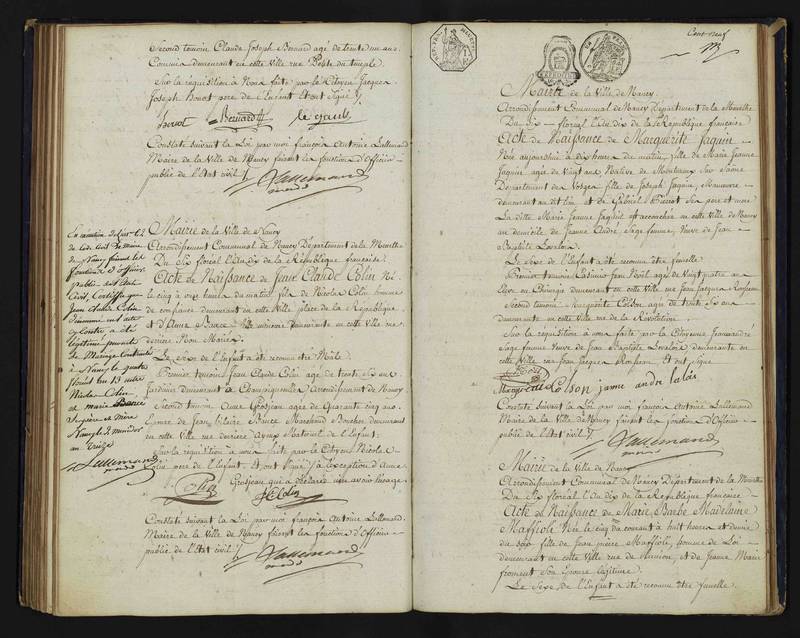 Second témoin Claude Joseph Bernard agé de trente un ans
Commis demeurant en cette Ville rue Porte du temple.
Sur la requisition à Nous faite par le Citoyen Jacques
Joseph Benoit pere de l'Enfant et ont Signé
Bernard
Constaté suivant la Loi par moi françois Antoine Lallemand
Maire de la Ville de Nancy faisant les fonctions d'Officier
public de l'Etat civil
Lallemand
Mairie de la Ville de Nancy
Arrondissement Communal de Nancy Département de la Meurthe
Du Six floréal l'an dix de la République française.
Acte de Naissance de Jean Claude Colin Né
le cinq à onze heures du matin, fils de Nicolas Colin homme
de confiance demeurant en cette Ville place de la République
et d'Anne Barce demeurante en cette Ville rue
derriere
Le Sexe de l'Enfant a été reconnu être Mâle.
Premier témoin Jean Claude Colin agé de trente Six ans
Jardinier demeurant à Champigneulles Arrondissement de Nancy
Second témoin Anne Grosjean agée de Quarante cinq ans
Epouse de Jean Barce Marchand Boucher demeurant
en cette Ville rue derriere
Sur la requisition à nous faite par le Citoyen Nicolas
Colin pere de l'Enfant. Et ont Signé à l'exception d'Anne
Grosjean qui a déclaré n'en avoir l'usage.
Colin
Colin
Constaté suivant la Loi par moi françois Antoine Lallemand
Maire de la Ville de Nancy faisant les fonctions d'Officier
public de l'Etat civil
Lallemand
de Nancy faisant les
fonctions d'officier
public de l'Etat
Civil, Certifie que
Jean Claude Colin
a été
légitimé
de Mariage
à Nancy le quatre
Nicolas Colin
et marie Barce
Ses père et mère
Nancy le
an treize
Lallemand
Cent neuf
Mairie de la Ville de Nancy.
Arrondissement Communal de Nancy Département de la Meurthe
Du Six floréal l'an dix de la République française
Acte de Naissance de Marguerite Jaquin
Née aujourd'hui à dix heures du matin, fille de Marie Jeanne
Jaquin agée de vingt ans Native de Monthureux Sur Saône
Département des Vosges fille de Joseph Jaquin, Manœuvre
demeurant au dit lieu et de Gabriel Pierrot Ses pere et mere
La ditte Marie Jeanne Jaquin accouchée en cette Ville de Nancy
au domicile de Jeanne André, Sage femme, Veuve de Jean
Baptiste Lavalois.
Le Sexe de l'Enfant a été reconnu être femelle.
Premier témoin Casimir Jean Noël agé de Vingt quatre ans
Elève en Chirurgie demeurant en cette Ville rue Jean Jacques Rousseau
Second témoin Marguerite Colson agée de trente Six ans
demeurante en cette Ville rue de la Révolution.
Sur la requisition à nous faite par la Citoyenne Jeanne André
Sage femme Veuve de Jean Baptiste Lavalois demeurante en
cette Ville rue Jean Jacques Rousseau. Et ont Signé
Marguerite Colson janne andre
Constaté suivant la Loi par moi françois Antoine Lallemand
Maire de la Ville de Nancy faisant les fonctions d'Officier
public de l'Etat civil
Lallemand
Mairie de la Ville de Nancy
Arrondissement Communal de Nancy Département de la Meurthe
Du Six floréal l'an dix de la République française
Acte de Naissance de Marie Barbe Madelaine
Maffiole Née le cinq du courant à huit heures et demie
du soir fille de Jean pierre Maffiole, homme de Loi
demeurant en cette Ville rue de et de Jeanne Marie
froment Son Epouse légitime.
Le Sexe de l'Enfant a été reconnu être femelle.